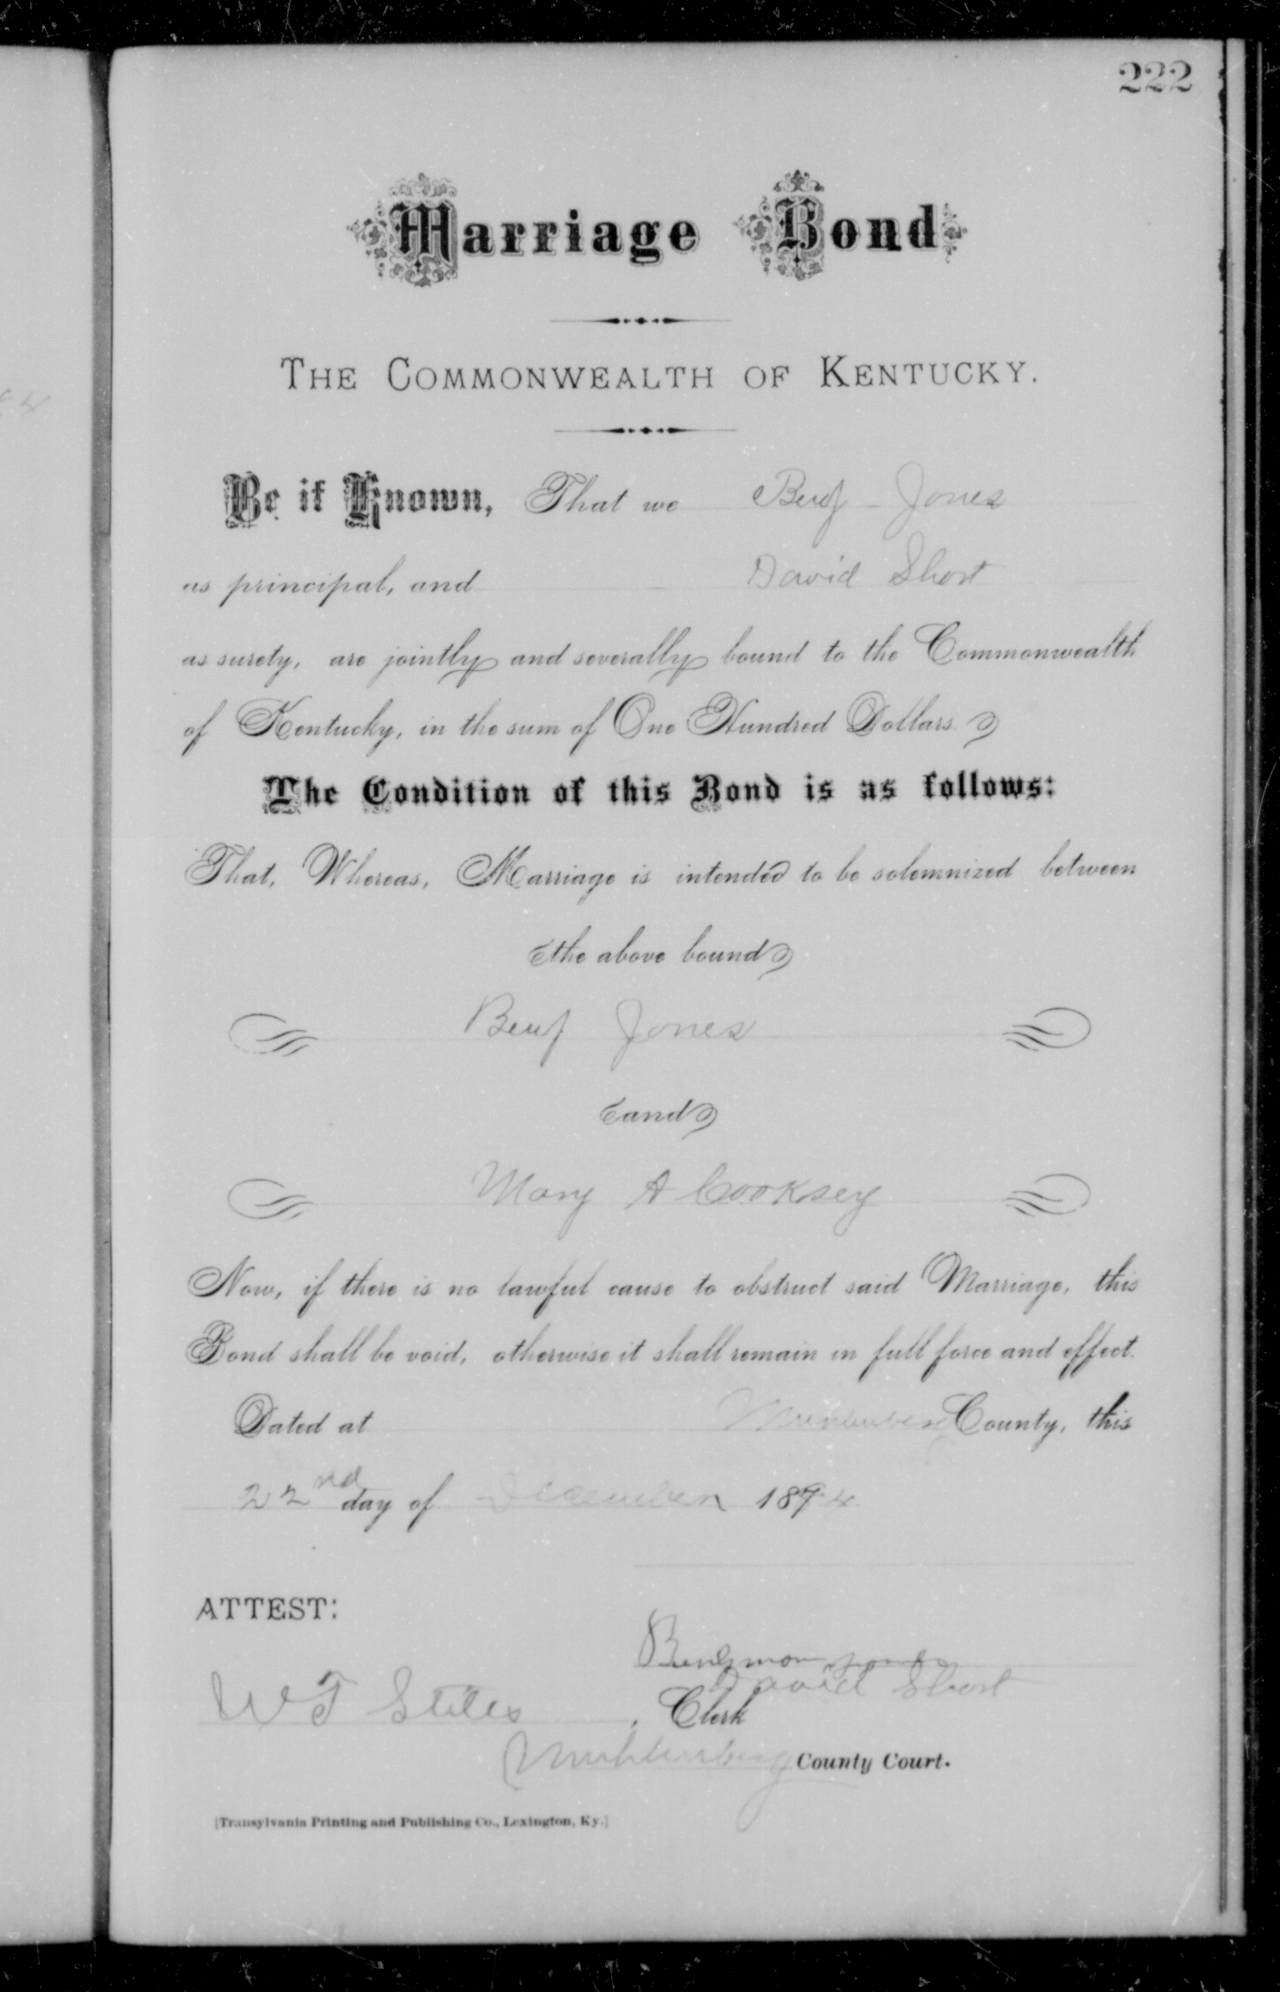 222
Marriage Bond
THE COMMONWEALTH OF KENTUCKY.
Be it Known, That we Benj Jones
as principal, and David Short
as surety, are jointly and severally bound to the Commonwealth
of Kentucky, in the sum of One Hundred Dollars.
The Condition of this Bond is as follows:
That, Whereas, Marriage is intended to be solemnized between
the above bound
Benj Jones
and
Mary A Cooksey
Now, if there is no lawful cause to obstruct said Marriage, this
Bond shall be void, otherwise it shall remain in full force and effect.
Dated at Muhlenberg County, this
22nd day of December 1894
ATTEST:
Jones
David Short
W T Stiles, Clerk
Muhlenberg County Court.
[Transylvania Printing and Publishing Co., Lexington, Ky.]